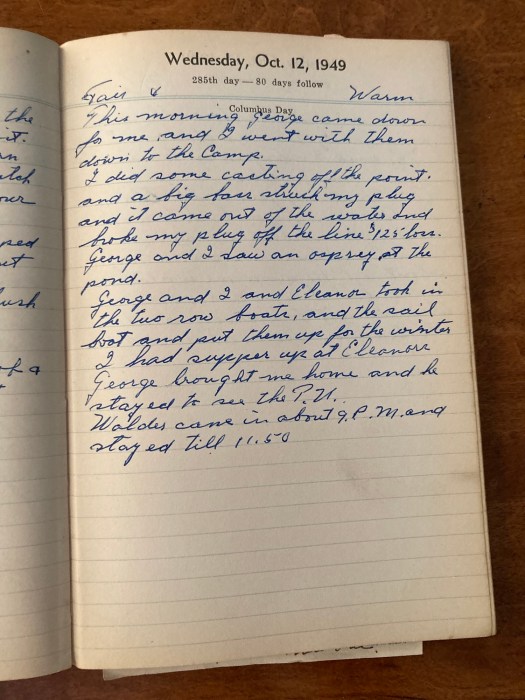 the
it.
tch
our
sed
ut
ush
of a
Wednesday, Oct. 12, 1949
285th day — 80 days follow
Fair & Warm
Columbus Day
This morning George came down
for me and I went with them
down to the Camp.
I did some casting off the point.
and a big bass struck my plug
and it came out of the water and
broke my plug off the line $1.25 loss.
George and I saw an osprey at the
pond.
George and I and Eleanor took in
the two row boats, and the sail
boat and put them up for the winter
I had supper up at Eleanors
George brought me home and he
stayed to see the T.V.
Walder came in about 9. P.M. and
stayed till 11.50